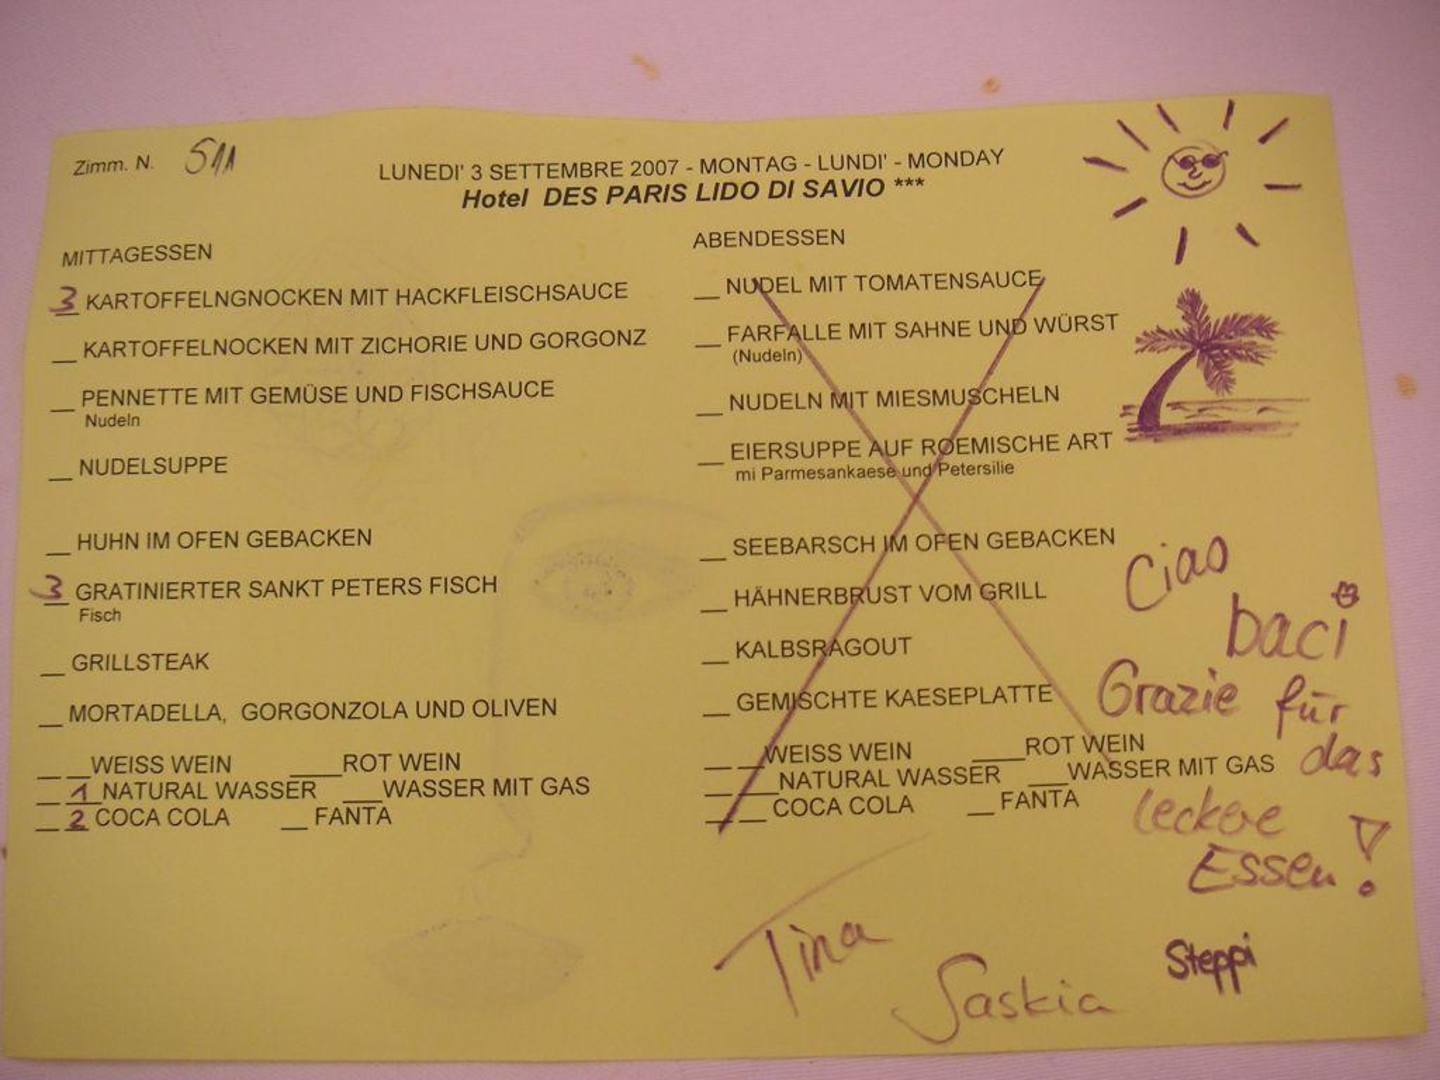 Zimm. N. 511
LUNEDI' 3 SETTEMBRE 2007 - MONTAG - LUNDI' - MONDAY
Hotel DES PARIS LIDO DI SAVIO ***
MITTAGESSEN
3 KARTOFFELNGNOCKEN MIT HACKFLEISCHSAUCE
__ KARTOFFELNOCKEN MIT ZICHORIE UND GORGONZ
__ PENNETTE MIT GEMÜSE UND FISCHSAUCE
Nudeln
__ NUDELSUPPE
__ HUHN IM OFEN GEBACKEN
3 GRATINIERTER SANKT PETERS FISCH
Fisch
__ GRILLSTEAK
__ MORTADELLA, GORGONZOLA UND OLIVEN
__ __WEISS WEIN ____ROT WEIN
__ 1 NATURAL WASSER ___WASSER MIT GAS
__ 2 COCA COLA __ FANTA
ABENDESSEN
__ NUDEL MIT TOMATENSAUCE
__ FARFALLE MIT SAHNE UND WÜRST
(Nudeln)
__ NUDELN MIT MIESMUSCHELN
__ EIERSUPPE AUF ROEMISCHE ART
mi Parmesankaese und Petersilie
__ SEEBARSCH IM OFEN GEBACKEN
__ HÄHNERBRUST VOM GRILL
__ KALBSRAGOUT
__ GEMISCHTE KAESEPLATTE
__ __WEISS WEIN ____ROT WEIN
__ __NATURAL WASSER ___WASSER MIT GAS
__ __ COCA COLA __ FANTA
Ciao
baci
Grazie für
das
leckere
Essen!
Tina
Saskia
Steppi